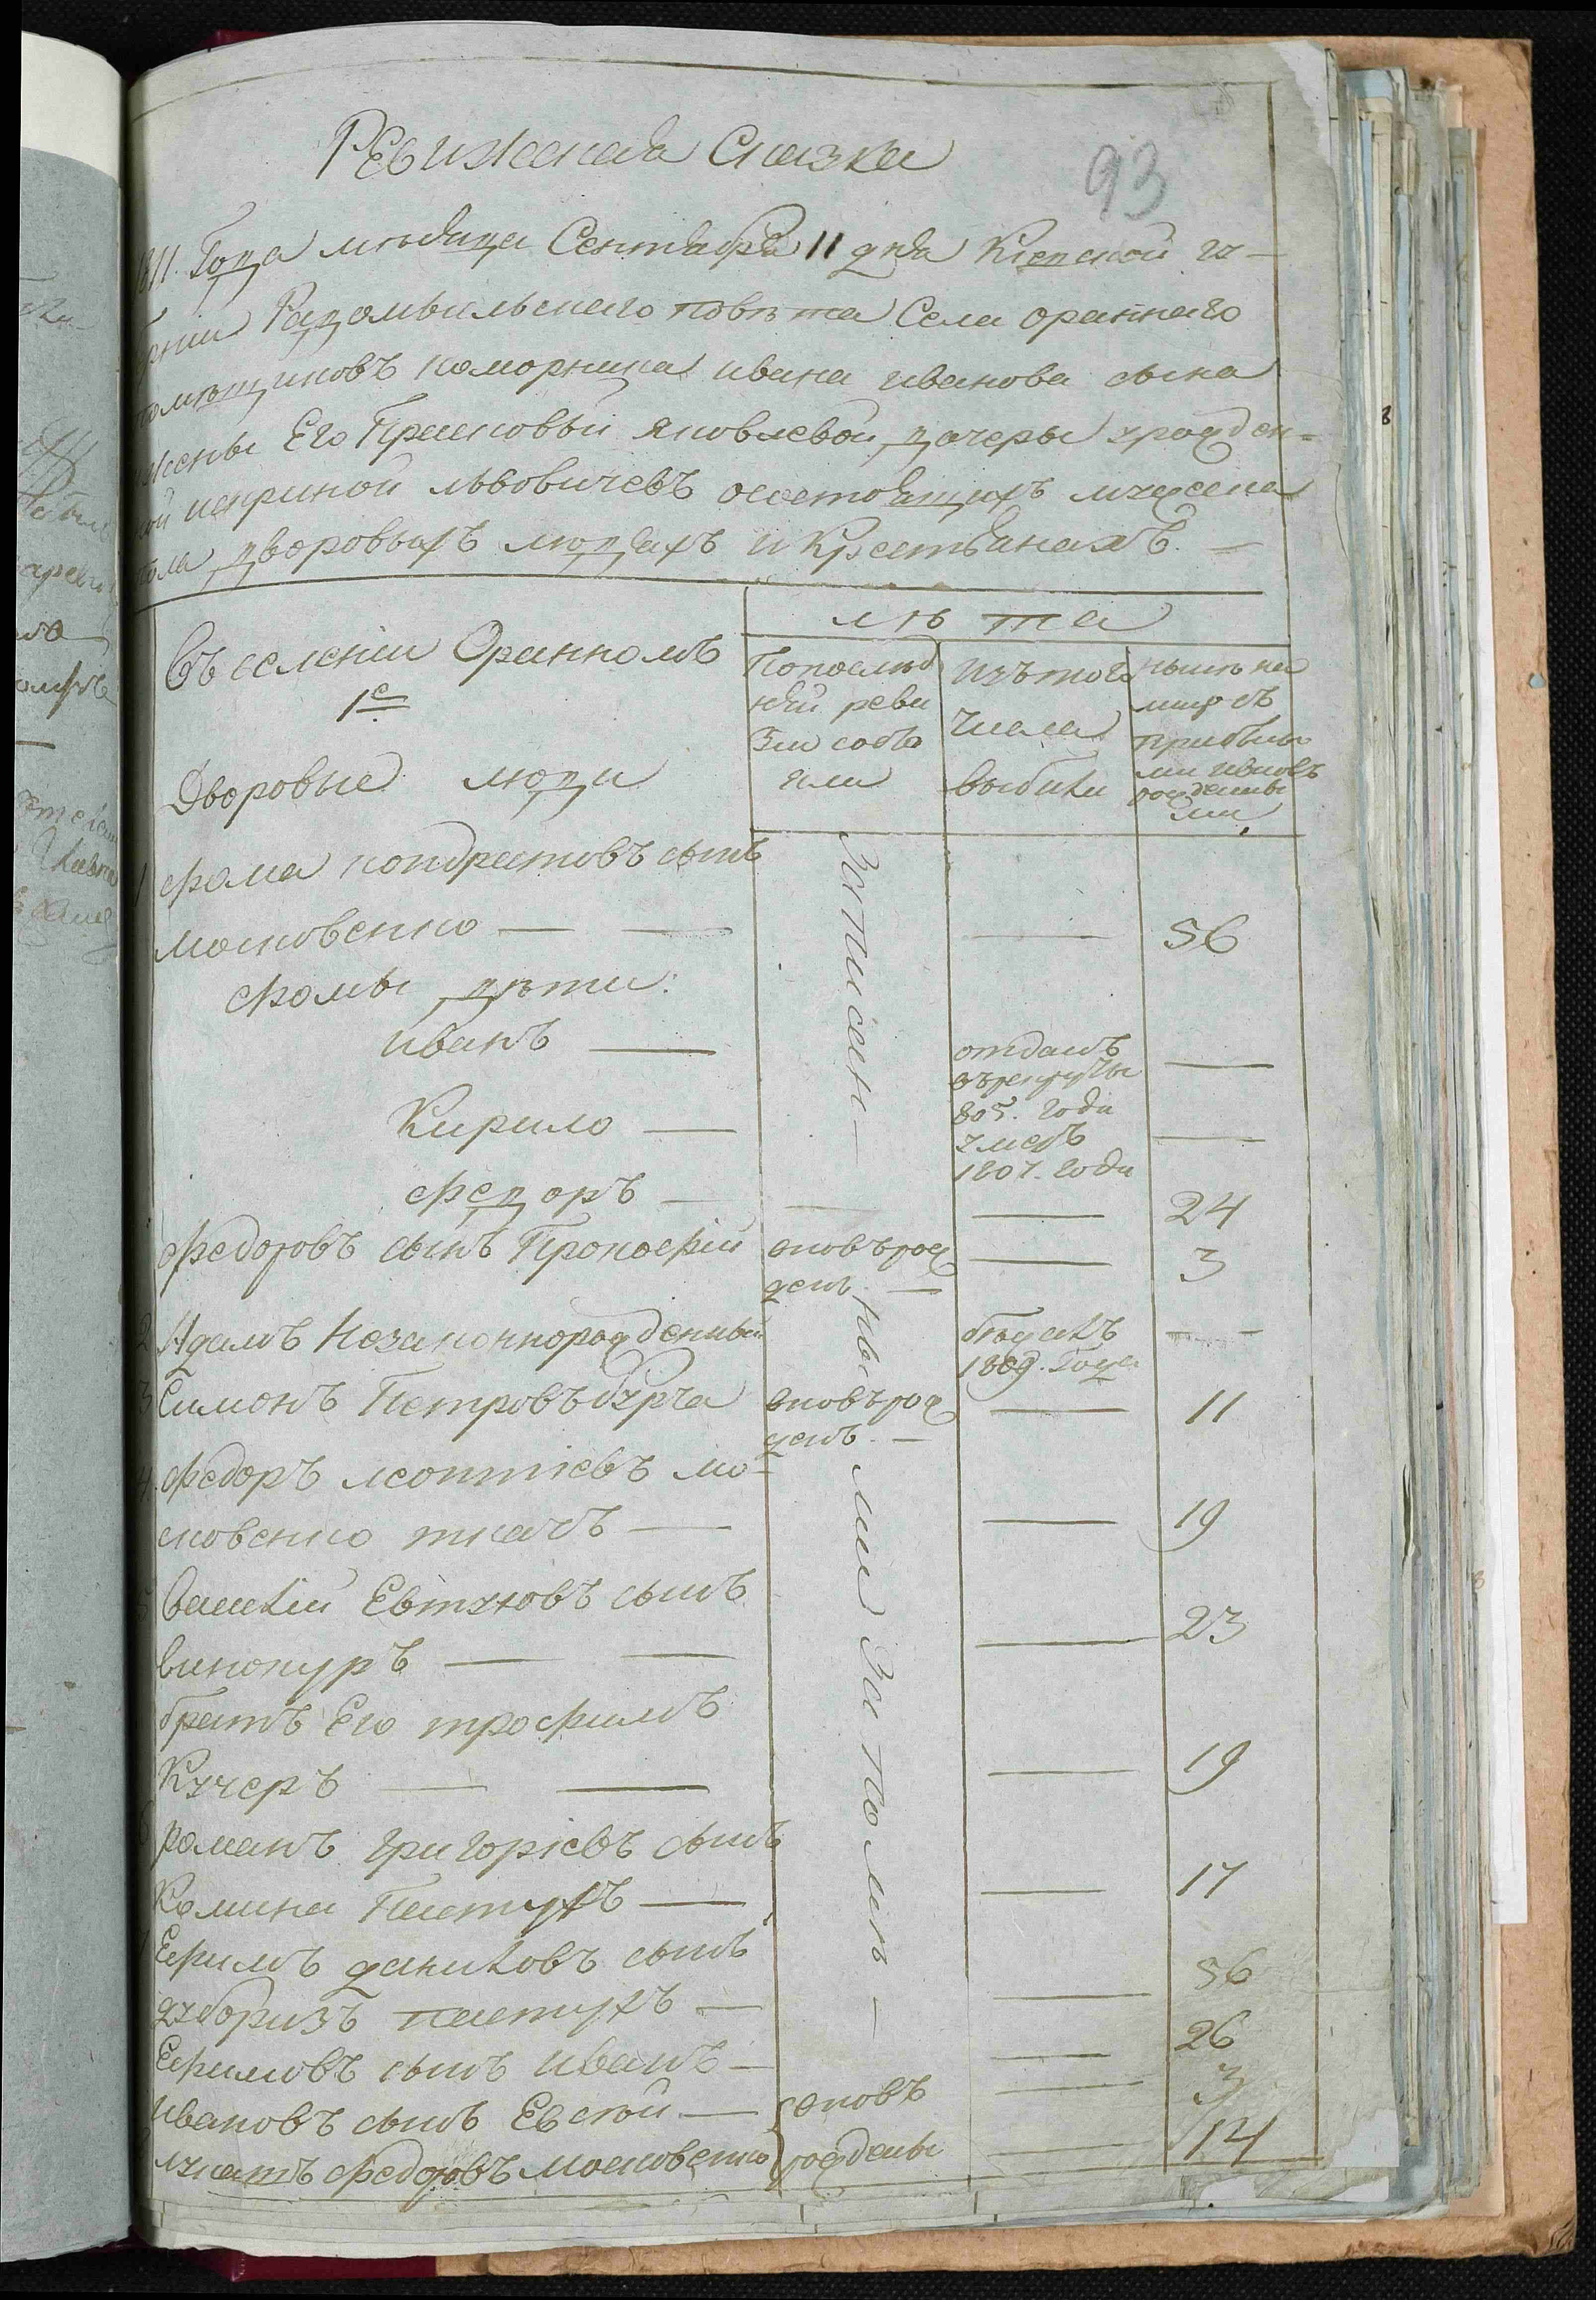 93
Ревижская Сказка
1811. Года мѣсяца Сентября 11 дня Кіевской гу-
берніи Радомысльского повѣта Села Оранного
помѣщиковъ коморника ивана иванова сына
и жены Его Прасковьи яковлевой дочеры урожден-
ной львовичевъ осостоящихъ мужеска
пола дворовыхъ людяхъ и Крестьянахъ. —
Въ селеніи Оранномъ
1е
Дворовые люди
лѣта
Попослѣд
ней реви
зіи состо
яли
Изътого
числа
выбыли
нынѣ на
лицо съ
прибылы
ми ивновь
рожденны
ми
1 фома кондратовъ сынъ
московенко — — — 56
фомы дѣти:
иванъ — отданъ
върекруты
805. года —
Кирило — умеръ
1807. года —
федоръ — — 24
федоровъ сынъ Прокофій вновьрож
денъ — — 3
2 Адамъ Незаконнорожденный бѣжалъ
1809. Года — —
3 Симонъ Петровъ бурча вновьрож
денъ — — 11
4. федоръ леонтіевъ мо-
сковенко ткачъ — — 19
5 Василій Евтуховъ сынъ
винокуръ — — — 23
братъ Его трофимъ
Кучеръ — — — 19
6 романъ григоріевъ сынъ
Калина Пастухъ — — 17
7 Ефимъ даниловъ сынъ
пастухъ — — 56
Ефимовъ сынъ иванъ — — 26
ивановъ сынъ Евсѣй — вновь — 3
лукашъ федоровъ московенко рождены — 14
Записан —
ны ми За по мѣ —